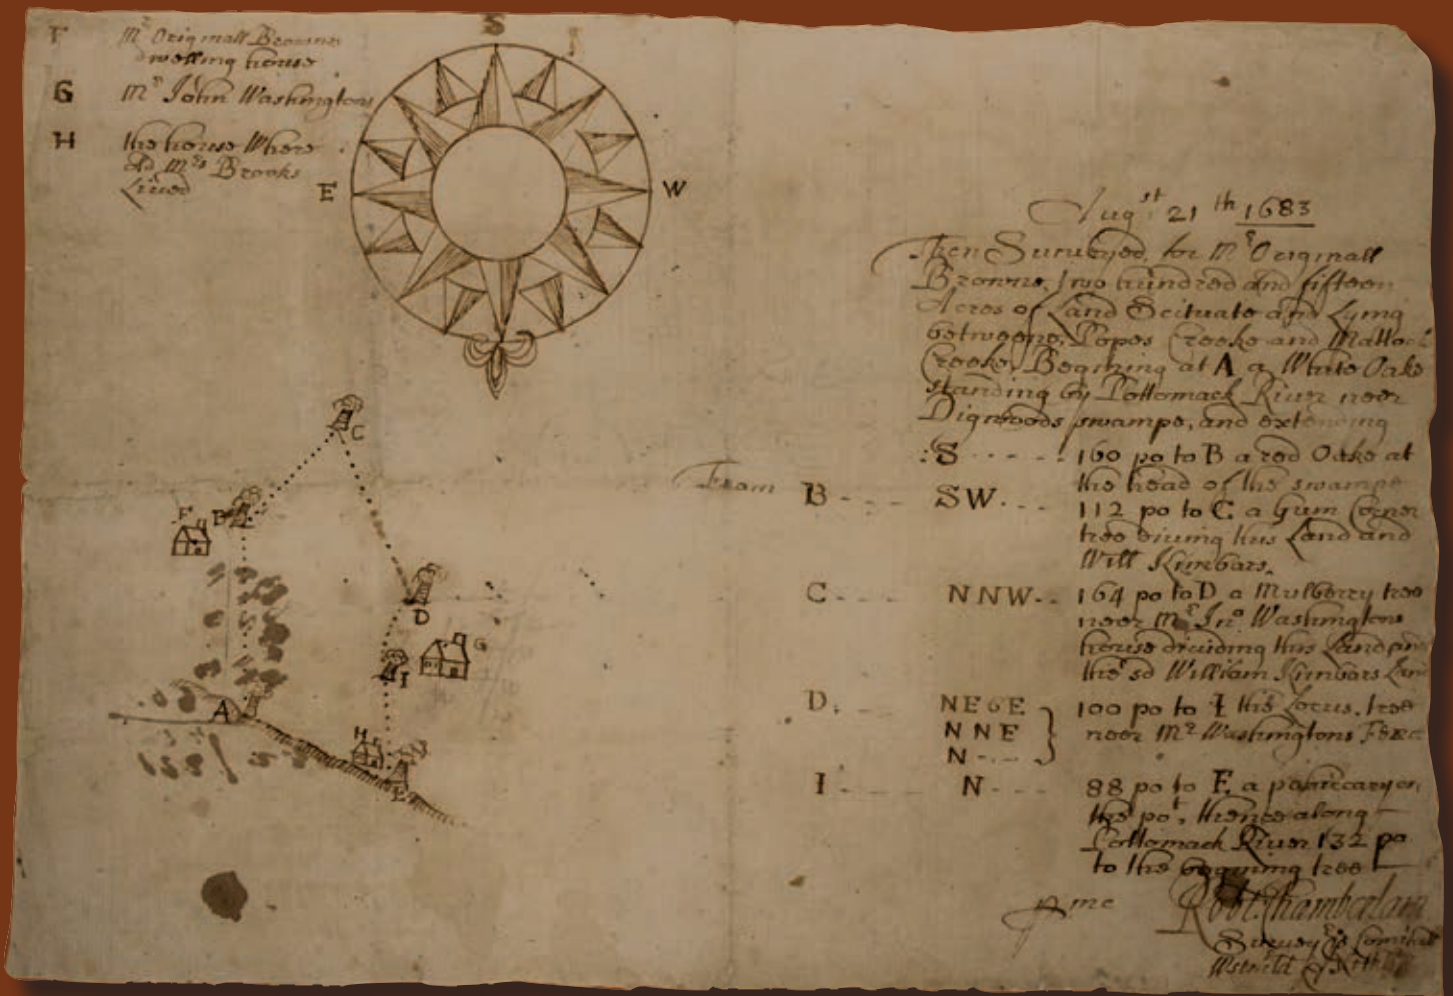 F Mr Originall Brownes
dwelling house
G Mr John Washingtons
H the house Where
old Mrs Brooks
Lived
S
E
W
C
F B
D
G
I
A
H
E
Augst 21th 1683
Then Surveyed for Mr Originall
Browne, Two hundred and fifteen
Acres of Land Scituate and Lying
betweene Popes Creeke and Mattocks
Creeke, Begining at A a White Oake
standing by Pottomack River neer
Digwoods swampe, and extending
:S 160 po to B a red Oake at
the head of the swampe
From B SW 112 po to C a Gum Corner
tree diviing this Land and
Will Kimbars.
C NNW 164 po to D a Mulberry tree
neer Mr Jno Washingtons
house dividing this Land
the sd William Kimbars Land
D. NE6E 100 po to I this Locus tree
NNE neer Mr Washingtons
N
I N 88 po to E a
the pot, thence along
Pottomack River 132 po
to the begining tree
p me Robt. Chamberlain
Survey